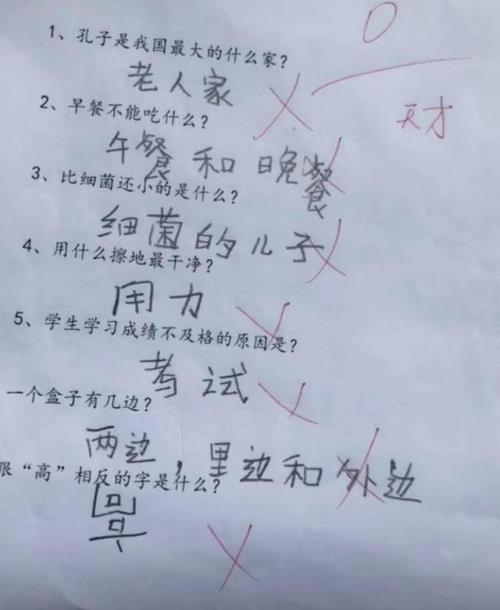 0
1、孔子是我国最大的什么家?
老人家
天才
2、早餐不能吃什么?
午餐和晚餐
3、比细菌还小的是什么?
细菌的儿子
4、用什么擦地最干净?
用力
5、学生学习成绩不及格的原因是?
考试
一个盒子有几边?
两边,里边和外边
跟“高”相反的字是什么?